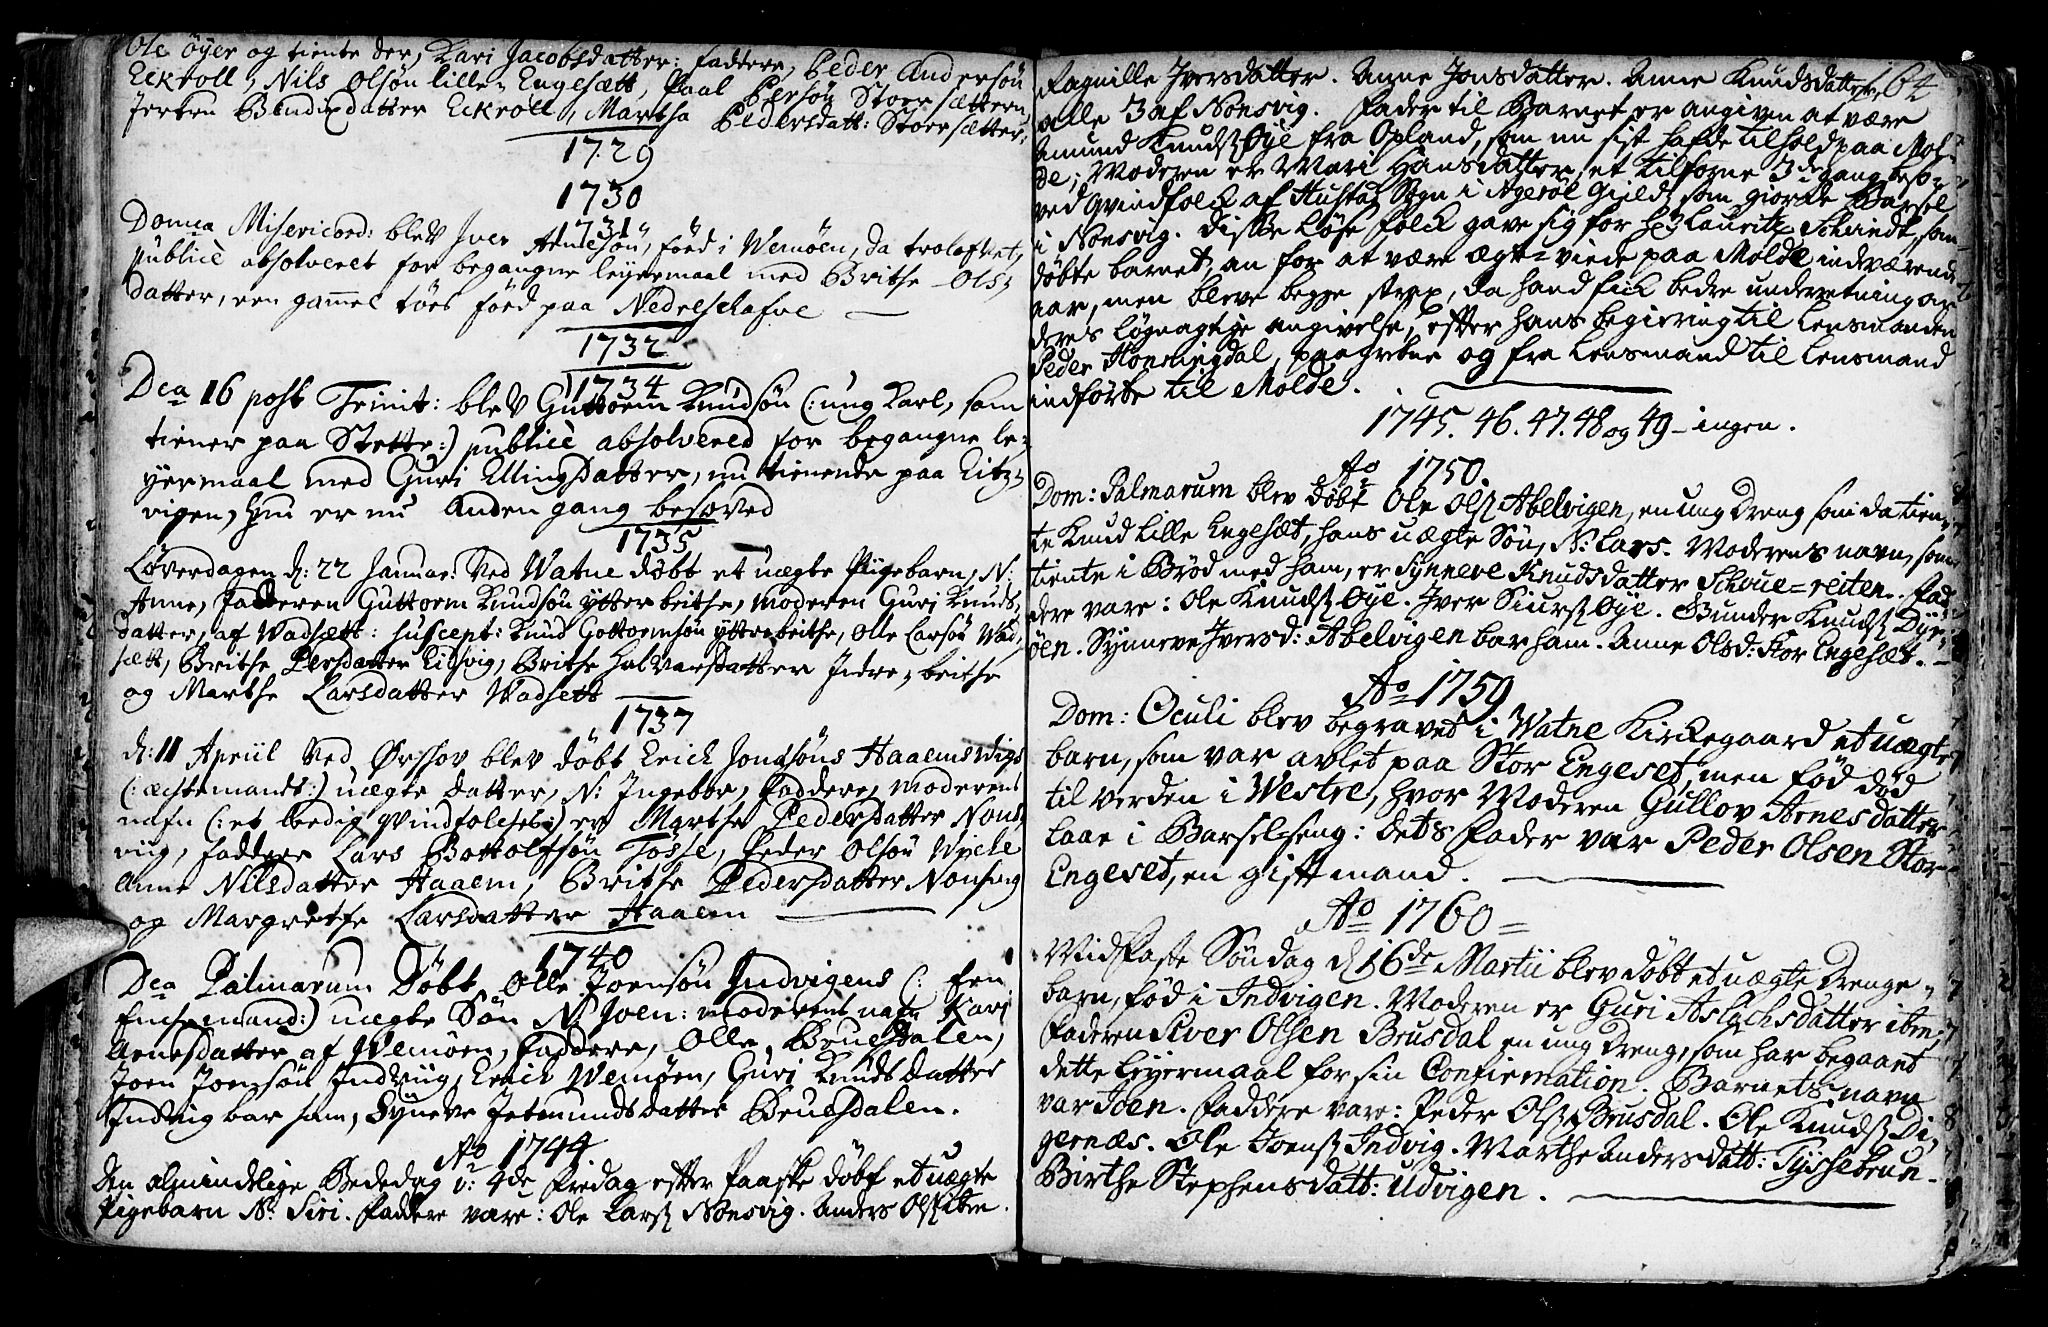 Ole Öyer og tiente der, Kari Jacobsdatter: faddere, Peder Andersön
Eckroll, Nils Olsön lille Engesætt, Paal Persön Stoer sættern
Jerten Bendixdatter Eckroll, Martha Pedersdatt: Stoersætter,
1729
1730
1731
Domca Misericord: blev Iver Arnesön, föed i Wemöen, da trolofvet,
publicè absolveret for begangne leyermaal med Brithe Ols-
datter, een gammel töes föed paa Nedreschafve
1732
1734
Dca 16 post Trinit: blev Guttorm Knudsön (: ung Karl, som
tiener paa Stette:) publicè absolvered for begangne le-
yermaal med Guri Ellingsdatter, nu tienende paa Ritz-
vigen, hun er nu anden gang besoved
1735
Löverdagen d: 22 Januar: Ved Watne döbt et uægte Pigebarn, N:
Anne, Faderen Guttorm Knudsön ytterbrithe, moderen Guri Knuds-
datter, af Wadsætt: suscept: Knud Gottormsön ytterbeithe, Olle Larsön Wad-
sætt, Brithe Persdatter Ritsvig, Brithe Halvarsdatter Indre-beithe
og Marthe Larsdatter Wadsett
1737
d: 11 Apriil Ved Ørschov blev döbt Erick Jonssöns Haaemsvigs
(: æctemands:) uægte datter, N: Ingebor, faddere, moderens
nafn (: et leedig qvindfolches:) er Marthe Pedersdatter Nons-
vig, faddere Lars Bottolfsön Tosse, Peder Olsön Wicke
Anne Nilsdatter Haaem, Brithe Pedersdatter Nonsvig
og Margrethe Larsdatter Haaem
1740
Dca Palmarum Döbt Olle Joensön Indvigens (: Een
Enchemand:) uægte Sön N: Joen: moderens nafn Kari
Arnesdatter af Wemöen, faddere, Olle Bruesdalen,
Joen Joensön Indviig, Erich Wemöen, Guri Knudsdatter
Indvig bar ham, Syneve Jetmundsdatter Bruesdalen.
Ao 1744
Den almindelige Bededag o: 4de Fredag efter Paaske döbt et uægte
Pigebarn N: Siri. Faddere vare: Ole Lars: Nonsvig. Anders Ols: ibm.
164
Ragnille Iversdatter. Anne Jonsdatter. Anne Knudsdatter,
alle 3 af Nonsvig. Fader til Barnet er angiven at være
Amund Knuds: Øye fra Opland, som nu sist hafde tilhold paa Mol-
de; Moderen er Mari Hansdatter, et tilforne 3de gang beso-
ved qvindfolk af Hustad Sogn i Ageröe Gield, som giorde Barsel
i Nonsvig. Disse Løse folck gave sig for Hr: Lauritz Schiindt, som
döbte barnet, an for at være ægte-viede paa Molde indværende
aar, men bleve begge strax, da hand fick bedre underretning om
deres Løgnagtige angivelse, efter hans begiering til Lensmanden
Peder Honningdal, paagrebne og fra Lensmand til Lensmand
indförte til Molde.
1745. 46. 47. 48 og 49 - ingen.
Ao 1750.
Dom: Palmarum blev döbt Ole Ols: Abelvigen, en ung Dreng som da tien-
te Knud Lille Engesæt, hans uægte Sön, N: Lars. Moderens navn, som
tiente i Bröd med ham, er Synneve Knudsdatter Schoue=reiten. Fad-
dere vare: Ole Knuds: Øye. Iver Siurs: Øye. Gunder Knuds: Dyr-
öen. Synneve Iversd: Abelvigen bar ham. Anne Olsd: Stor Engesæt.
Ao 1759
Dom: Oculi blev begravet i Watne Kirkegaard et uægte
barn, som var avlet paa Stor Engeset, men fød död
til verden i Westre, hvor Moderen Gullov Arnesdatter
laae i Barselseng: dets Fader var Peder Olsen Stor-
Engeset, en gift mand.
Ao 1760
Midfaste Söndag d: 16de Martii blev döbt et uægte Drenge-
barn, föd i Indvigen. Moderen er Guri Aslachsdatter ibm;
Faderen Siver Olsen Brusdal en ung Dreng, som har begaaet
dette Leyermaal for sin Confirmation. Barnets navn
var Joen. Faddere vare: Peder Ols: Brusdal. Ole Knuds: Di-
gernæs. Ole Joens: Indvig. Marthe Andersdatt: Tyssebrun.
Birthe Stephensdatt: Udvigen.